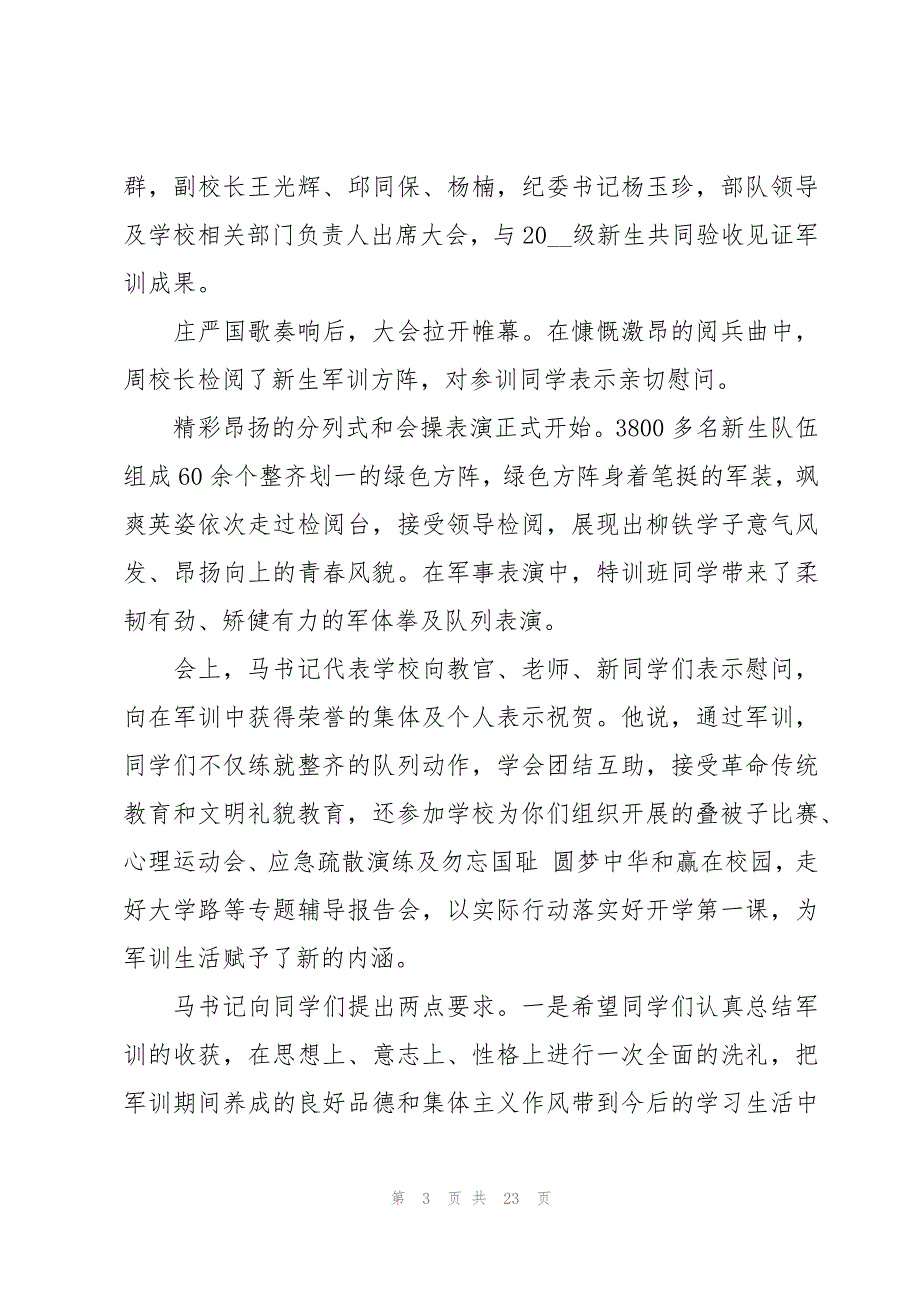 群，副校长王光辉、邱同保、杨楠，纪委书记杨玉珍，部队领导
及学校相关部门负责人出席大会，与 20__级新生共同验收见证军
训成果。
庄严国歌奏响后，大会拉开帷幕。在慷慨激昂的阅兵曲中，
周校长检阅了新生军训方阵，对参训同学表示亲切慰问。
精彩昂扬的分列式和会操表演正式开始。3800 多名新生队伍
组成 60 余个整齐划一的绿色方阵，绿色方阵身着笔挺的军装，飒
爽英姿依次走过检阅台，接受领导检阅，展现出柳铁学子意气风
发、昂扬向上的青春风貌。在军事表演中，特训班同学带来了柔
韧有劲、矫健有力的军体拳及队列表演。
会上，马书记代表学校向教官、老师、新同学们表示慰问，
向在军训中获得荣誉的集体及个人表示祝贺。他说，通过军训，
同学们不仅练就整齐的队列动作，学会团结互助，接受革命传统
教育和文明礼貌教育，还参加学校为你们组织开展的叠被子比赛、
心理运动会、应急疏散演练及勿忘国耻 圆梦中华和赢在校园，走
好大学路等专题辅导报告会，以实际行动落实好开学第一课，为
军训生活赋予了新的内涵。
马书记向同学们提出两点要求。一是希望同学们认真总结军
训的收获，在思想上、意志上、性格上进行一次全面的洗礼，把
军训期间养成的良好品德和集体主义作风带到今后的学习生活中
第 3 页 共 23 页